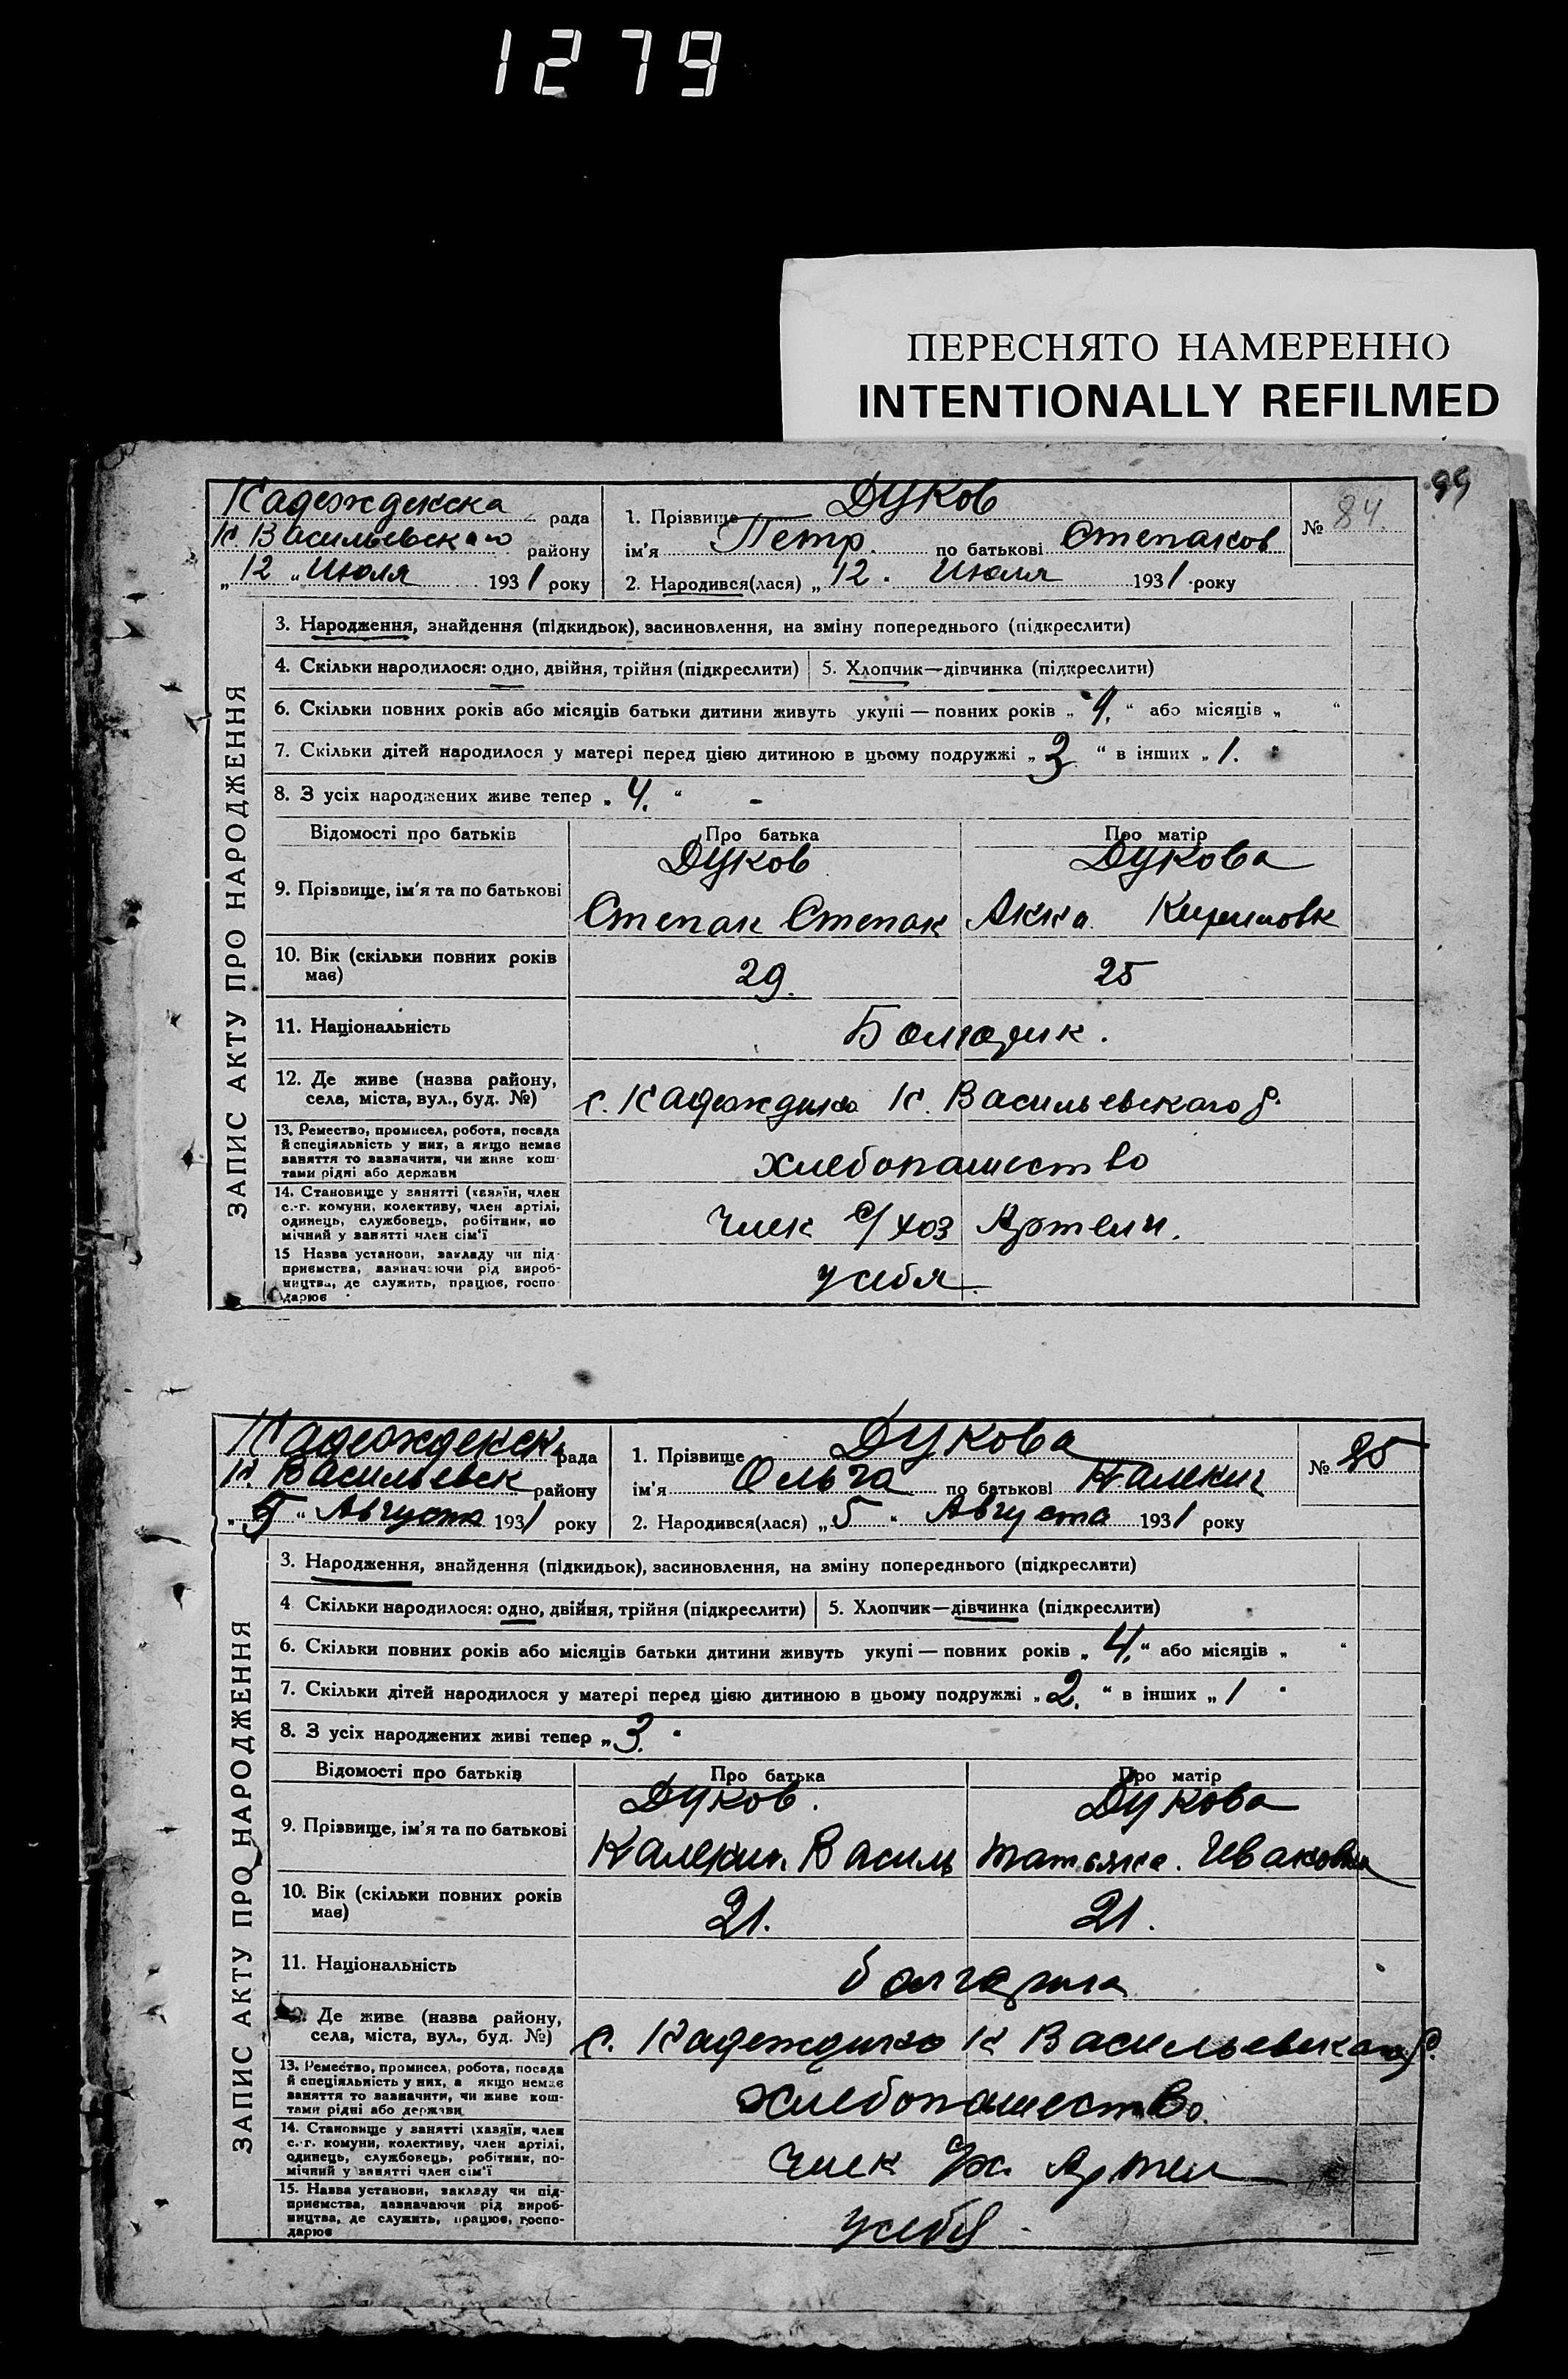 1279
ПЕРЕСНЯТО НАМЕРЕННО
INTENTIONALLY REFILMED
99
ЗАПИС АКТУ ПРО НАРОДЖЕННЯ
Надежденска рада
Н Васильевского району
„ 12 " Июля 1931 року
1. Прізвище Дуков
ім'я Петр. по батькові Степанов
2. Народився(лася) „ 12. Июля 1931 року
№ 84.
3. Народження, знайдення (підкидьок), засиновлення, на зміну попереднього (підкреслити)
4. Скільки народилося: одно, двійня, трійня (підкреслити) 5. Хлопчик—дівчинка (підкреслити)
6. Скільки повних років або місяців батьки дитини живуть укупі — повних років „ 4. " або місяців „ "
7. Скільки дітей народилося у матері перед цією дитиною в цьому подружжі „ 3 " в інших „ 1. "
8. З усіх народжених живе тепер „ 4. "
Відомості про батьків Про батька Про матір
9. Прізвище, ім'я та по батькові Дуков Дукова
Степан Степан Анна
10. Вік (скільки повних років має) 29. 25
11. Національність Болгарин.
12. Де живе (назва району, села, міста, вул., буд. №) с. Надеждино Н. Васильевского р.
13. Ремество, промисел, робота, посада й спеціяльність у них, а якщо немає заняття то зазначити, чи живе коштами рідні або держави хлебопашество
14. Становище у занятті (хазяїн, член с.-г. комуни, колективу, член артілі, одинець, службовець, робітник, помічний у занятті член сім'ї член с/хоз Артели.
15 Назва установи, закладу чи підприємства, зазначаючи рід виробництва, де служить, працює, господарює у себя
ЗАПИС АКТУ ПРО НАРОДЖЕННЯ
Надежденск. рада
Н. Васильевск району
„ 5 " Августа 1931 року
1. Прізвище Дукова
ім'я Ольга по батькові
2. Народився(лася) „ 5 " Августа 1931 року
№ 85
3. Народження, знайдення (підкидьок), засиновлення, на зміну попереднього (підкреслити)
4 Скільки народилося: одно, двійня, трійня (підкреслити) 5. Хлопчик—дівчинка (підкреслити)
6. Скільки повних років або місяців батьки дитини живуть укупі — повних років „ 4. " або місяців „ "
7. Скільки дітей народилося у матері перед цією дитиною в цьому подружжі „ 2. " в інших „ 1 "
8. З усіх народжених живі тепер „ 3. "
Відомості про батьків Про батька Про матір
9. Прізвище, ім'я та по батькові Дуков. Дукова
Василь Татьяна. Ивановна
10. Вік (скільки повних років має) 21. 21.
11. Національність болгарина
12. Де живе (назва району, села, міста, вул., буд. №) с. Надеждино Н Васильевского р.
13. Ремество, промисел, робота, посада й спеціяльність у них, а якщо немає заняття то зазначити, чи живе коштами рідні або держави хлебопашество.
14. Становище у занятті (хазяїн, член с.-г. комуни, колективу, член артілі, одинець, службовець, робітник, помічний у занятті член сім'ї член с/х. Артел
15. Назва установи, закладу чи підприємства, зазначаючи рід виробництва, де служить, працює, господарює у себя